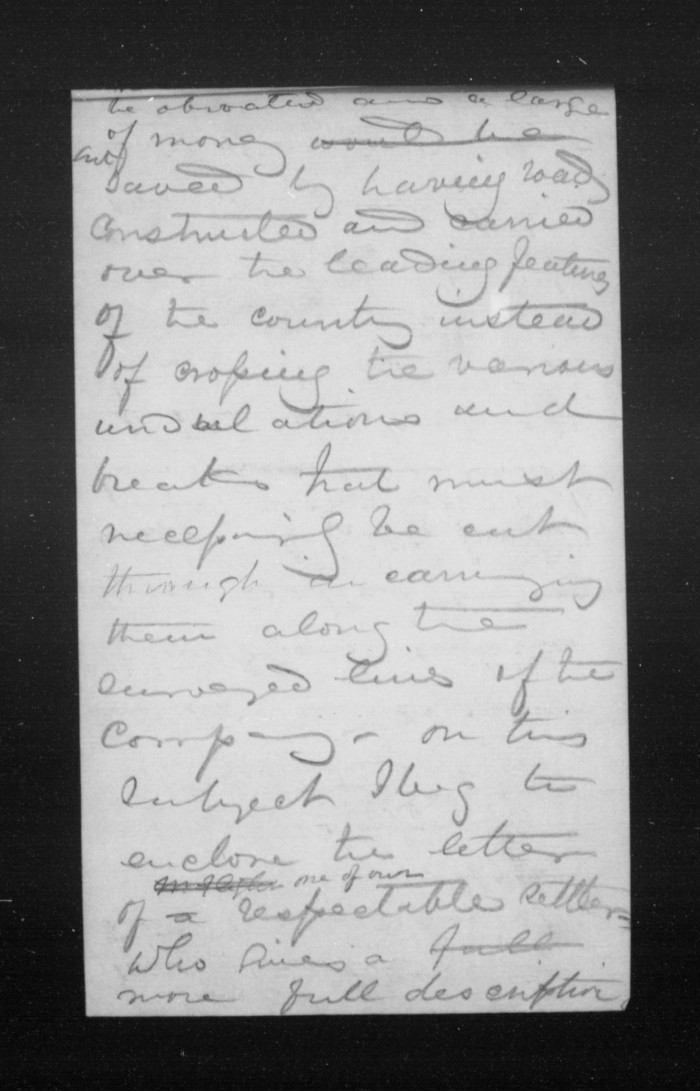 be obviated and a large
of money would be
saved by having roads
constructed and carried
over the leading features
of the country instead
of crossing the various
undulations and
breaks that must
necessarily be cut
through in carrying
them along the
surveyed lines of the
Company - on this
subject I beg to
enclose the letter
one of our
of a respectable settlers
who gives a full
more full description